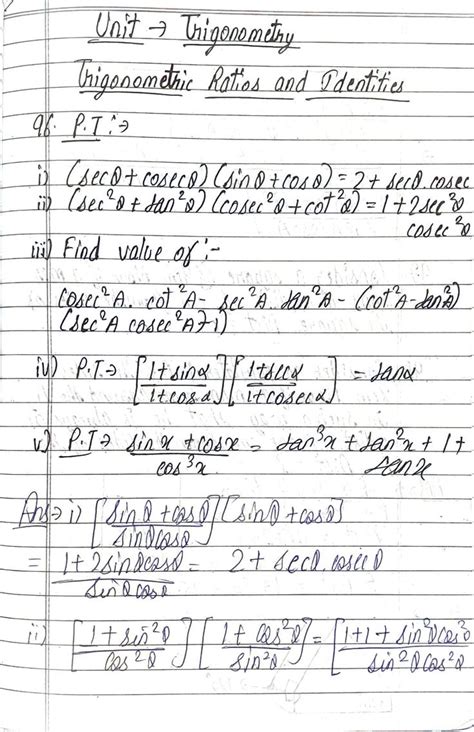 Unit → Trigonometry
Trigonometric Ratios and Identities
96. P.T:→
i) (secθ+cosecθ)(sinθ+cosθ)=2+secθ.cosec
ii) (sec²θ+tan²θ)(cosec²θ+cot²θ)=1+2sec²θ
cosec²θ
iii) Find value of :-
cosec²A. cot²A- sec²A.tan²A-(cot²A-tan²A)
(sec²A cosec²A+1)
iv) P.T.→ [1+sinα/1+cosα][1+secα/1+cosecα] = tanα
v) P.T→ sinx+cosx/cos³x = tan³x+tan²x+1+
tanx
Ans→ i) [sinθ+cosθ/sinθcosθ][sinθ+cosθ]
= 1+2sinθcosθ/sinθcosθ = 2+secθ.cosecθ
ii) [1+sin²θ/cos²θ][1+cos²θ/sin²θ]=[1+1+sin²θcos²θ/sin²θcos²θ